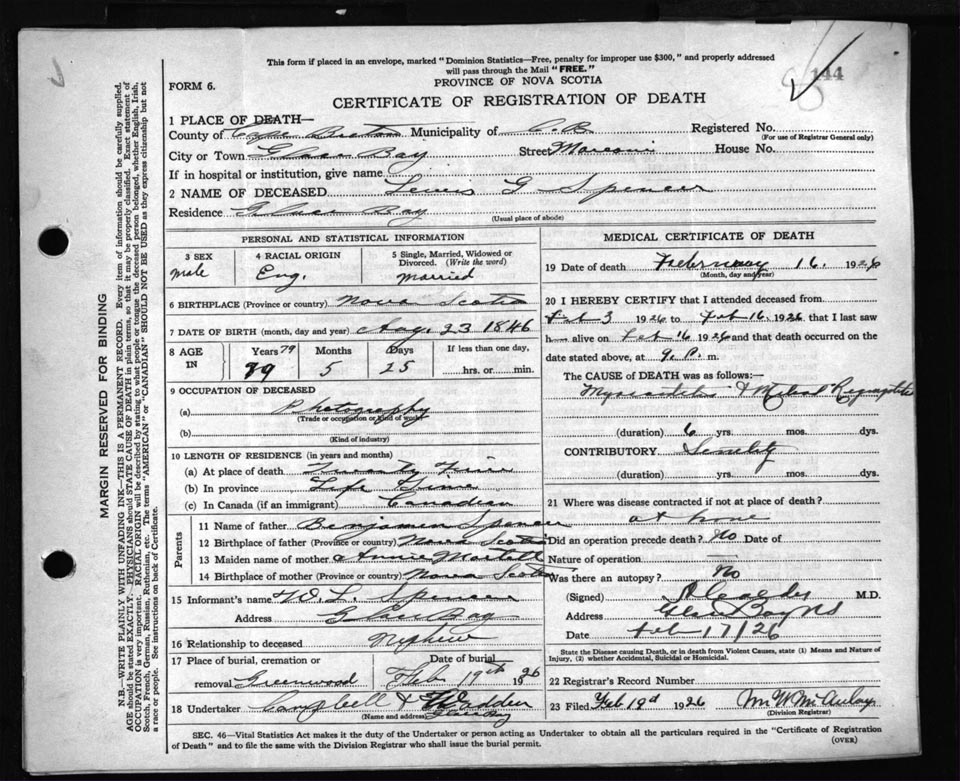 This form if placed in an envelope, marked "Dominion Statistics—Free, penalty for improper use $300," and properly addressed
will pass through the Mail "FREE."
144
FORM 6.
PROVINCE OF NOVA SCOTIA
CERTIFICATE OF REGISTRATION OF DEATH
1 PLACE OF DEATH—
County of Cape Breton Municipality of C. B. Registered No.
(For use of Registrar General only)
City or Town Glace Bay Street Marconi House No.
If in hospital or institution, give name
2 NAME OF DECEASED Lewis G Spencer
Residence Glace Bay
(Usual place of abode)
PERSONAL AND STATISTICAL INFORMATION
3 SEX
male
4 RACIAL ORIGIN
Eng.
5 Single, Married, Widowed or
Divorced. (Write the word)
married
6 BIRTHPLACE (Province or country) Nova Scotia
7 DATE OF BIRTH (month, day and year) Aug. 23 1846
8 AGE
IN
Years 79
79
Months
5
Days
25
If less than one day,
hrs. or min.
9 OCCUPATION OF DECEASED
(a) Photography
(Trade or occupation or kind of work)
(b)
(Kind of industry)
10 LENGTH OF RESIDENCE (in years and months)
(a) At place of death Twenty
(b) In province Life Time
(c) In Canada (if an immigrant) Canadian
Parents
11 Name of father Benjamin Spencer
12 Birthplace of father (Province or country) Nova Scotia
13 Maiden name of mother Annie Martell
14 Birthplace of mother (Province or country) Nova Scotia
15 Informant's name W. L. Spencer
Address Glace Bay
16 Relationship to deceased Nephew
17 Place of burial, cremation or
removal Greenwood
Date of burial
Feb 19th 1926
18 Undertaker Campbell & Wadden
(Name and address) Glace Bay
MEDICAL CERTIFICATE OF DEATH
19 Date of death February 16. 1926
(Month, day and year)
20 I HEREBY CERTIFY that I attended deceased from
Feb 3 1926 to Feb 16. 1926 that I last saw
h alive on Feb 16 1926 and that death occurred on the
date stated above, at 9. P. m.
The CAUSE of DEATH was as follows:—
Myocarditis & Mitral Regurgitation
(duration) 6 yrs. mos. dys.
CONTRIBUTORY Senility
(duration) yrs. mos. dys.
21 Where was disease contracted if not at place of death?
at home
Did an operation precede death? No Date of
Nature of operation
Was there an autopsy? No
(Signed) M.D.
Address Glace Bay NS
Date Feb 17/26
State the Disease causing Death, or in death from Violent Causes, state (1) Means and Nature of
Injury, (2) whether Accidental, Suicidal or Homicidal.
22 Registrar's Record Number
23 Filed Feb 19d 1926
(Division Registrar)
SEC. 46—Vital Statistics Act makes it the duty of the Undertaker or Person acting as Undertaker to obtain all the particulars required in the "Certificate of Registration
of Death" and to file the same with the Division Registrar who shall issue the burial permit.
(OVER)
MARGIN RESERVED FOR BINDING
N.B.—WRITE PLAINLY WITH UNFADING INK—THIS IS A PERMANENT RECORD. Every item of information should be carefully supplied.
AGE should be stated EXACTLY. PHYSICIANS should STATE CAUSE OF DEATH in plain terms, so that it may be properly classified. Exact statement of
OCCUPATION is very important. RACIAL ORIGIN will be described by stating to what people or tongue the deceased person belonged, whether English, Irish,
Scotch, French, German, Russian, Ruthenian, etc. The terms "AMERICAN" or "CANADIAN" SHOULD NOT BE USED as they express citizenship but not
a race or people. See instructions on back of Certificate.